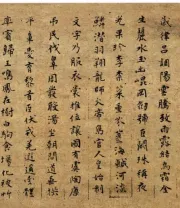 歲律呂調陽雲騰致雨露結為霜金
生麗水玉出崑岡劍號巨闕珠稱夜
光果珍李柰菜重芥薑海鹹河淡
鱗潛羽翔龍師火帝鳥官人皇始制
文字乃服衣裳推位讓國有虞陶唐
弔民伐罪周發殷湯坐朝問道垂拱
平章愛育黎首臣伏戎羌遐邇壹體
率賓歸王鳴鳳在樹白駒食場化被草